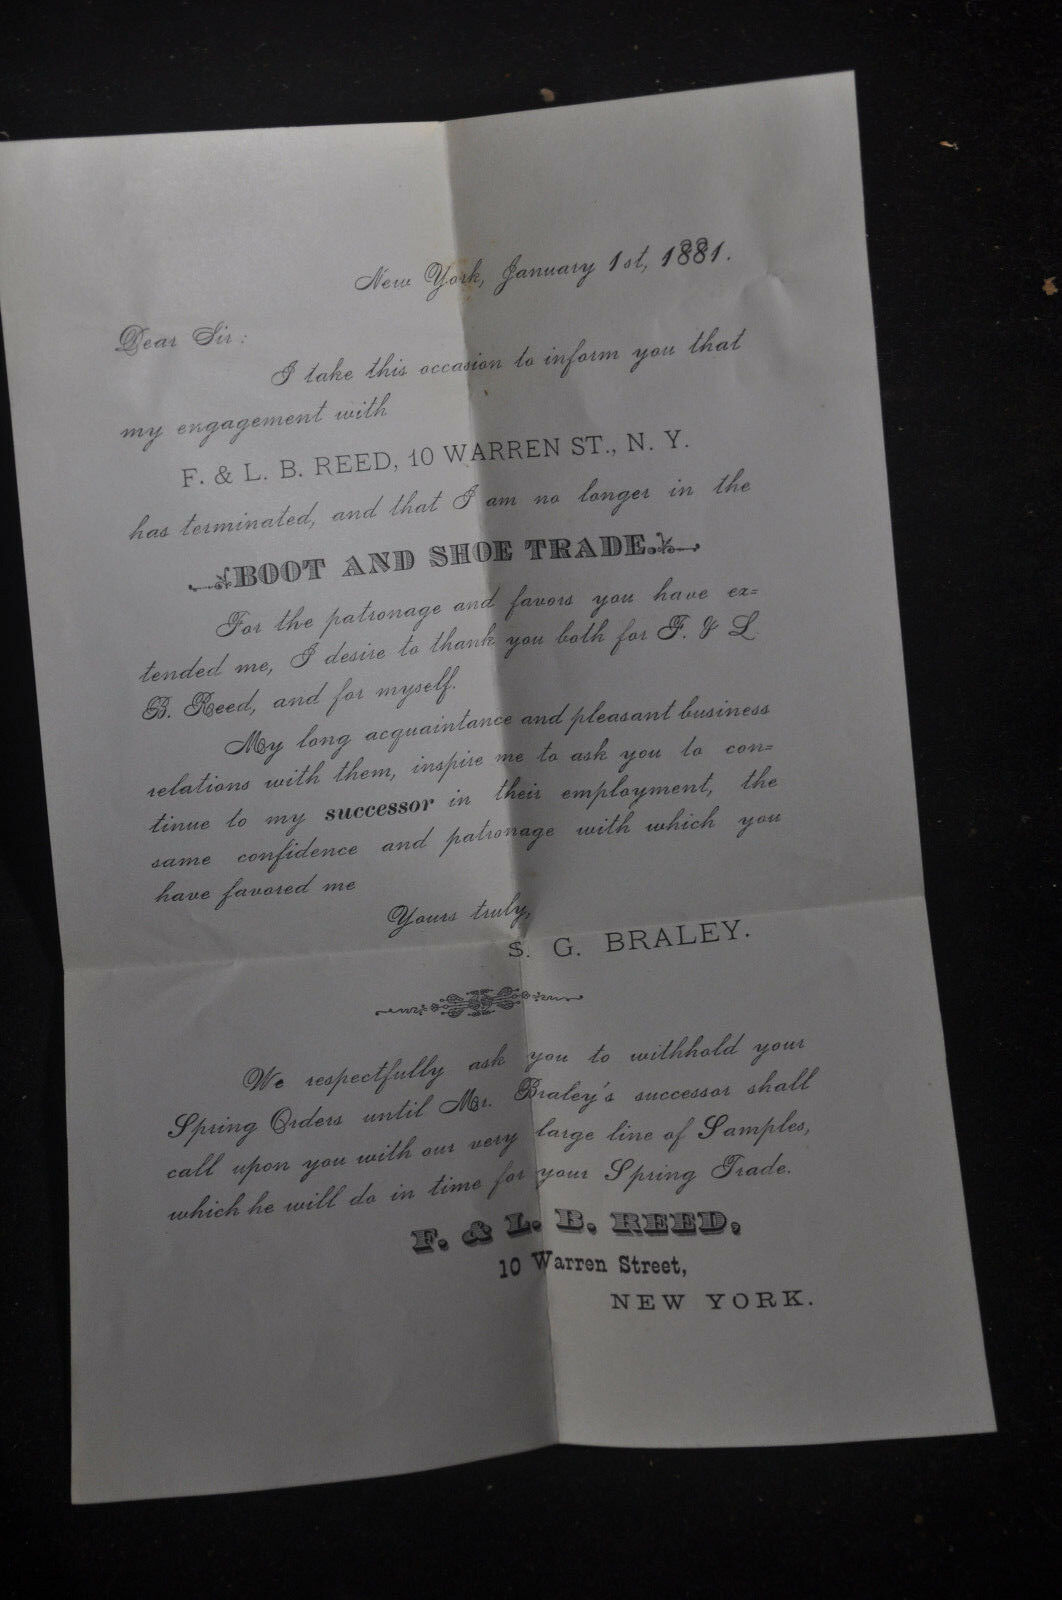 New York, January 1st, 1881.
Dear Sir:
I take this occasion to inform you that
my engagement with
F. & L. B. REED, 10 WARREN ST., N. Y.
has terminated, and that I am no longer in the
BOOT AND SHOE TRADE.
For the patronage and favors you have ex=
tended me, I desire to thank you both for F. & L.
B. Reed, and for myself.
My long acquaintance and pleasant business
relations with them, inspire me to ask you to con=
tinue to my successor in their employment, the
same confidence and patronage with which you
have favored me
Yours truly,
S. G. BRALEY.
We respectfully ask you to withhold your
Spring Orders until Mr. Braley's successor shall
call upon you with our very large line of Samples,
which he will do in time for your Spring Trade.
F. & L. B. REED,
10 Warren Street,
NEW YORK.